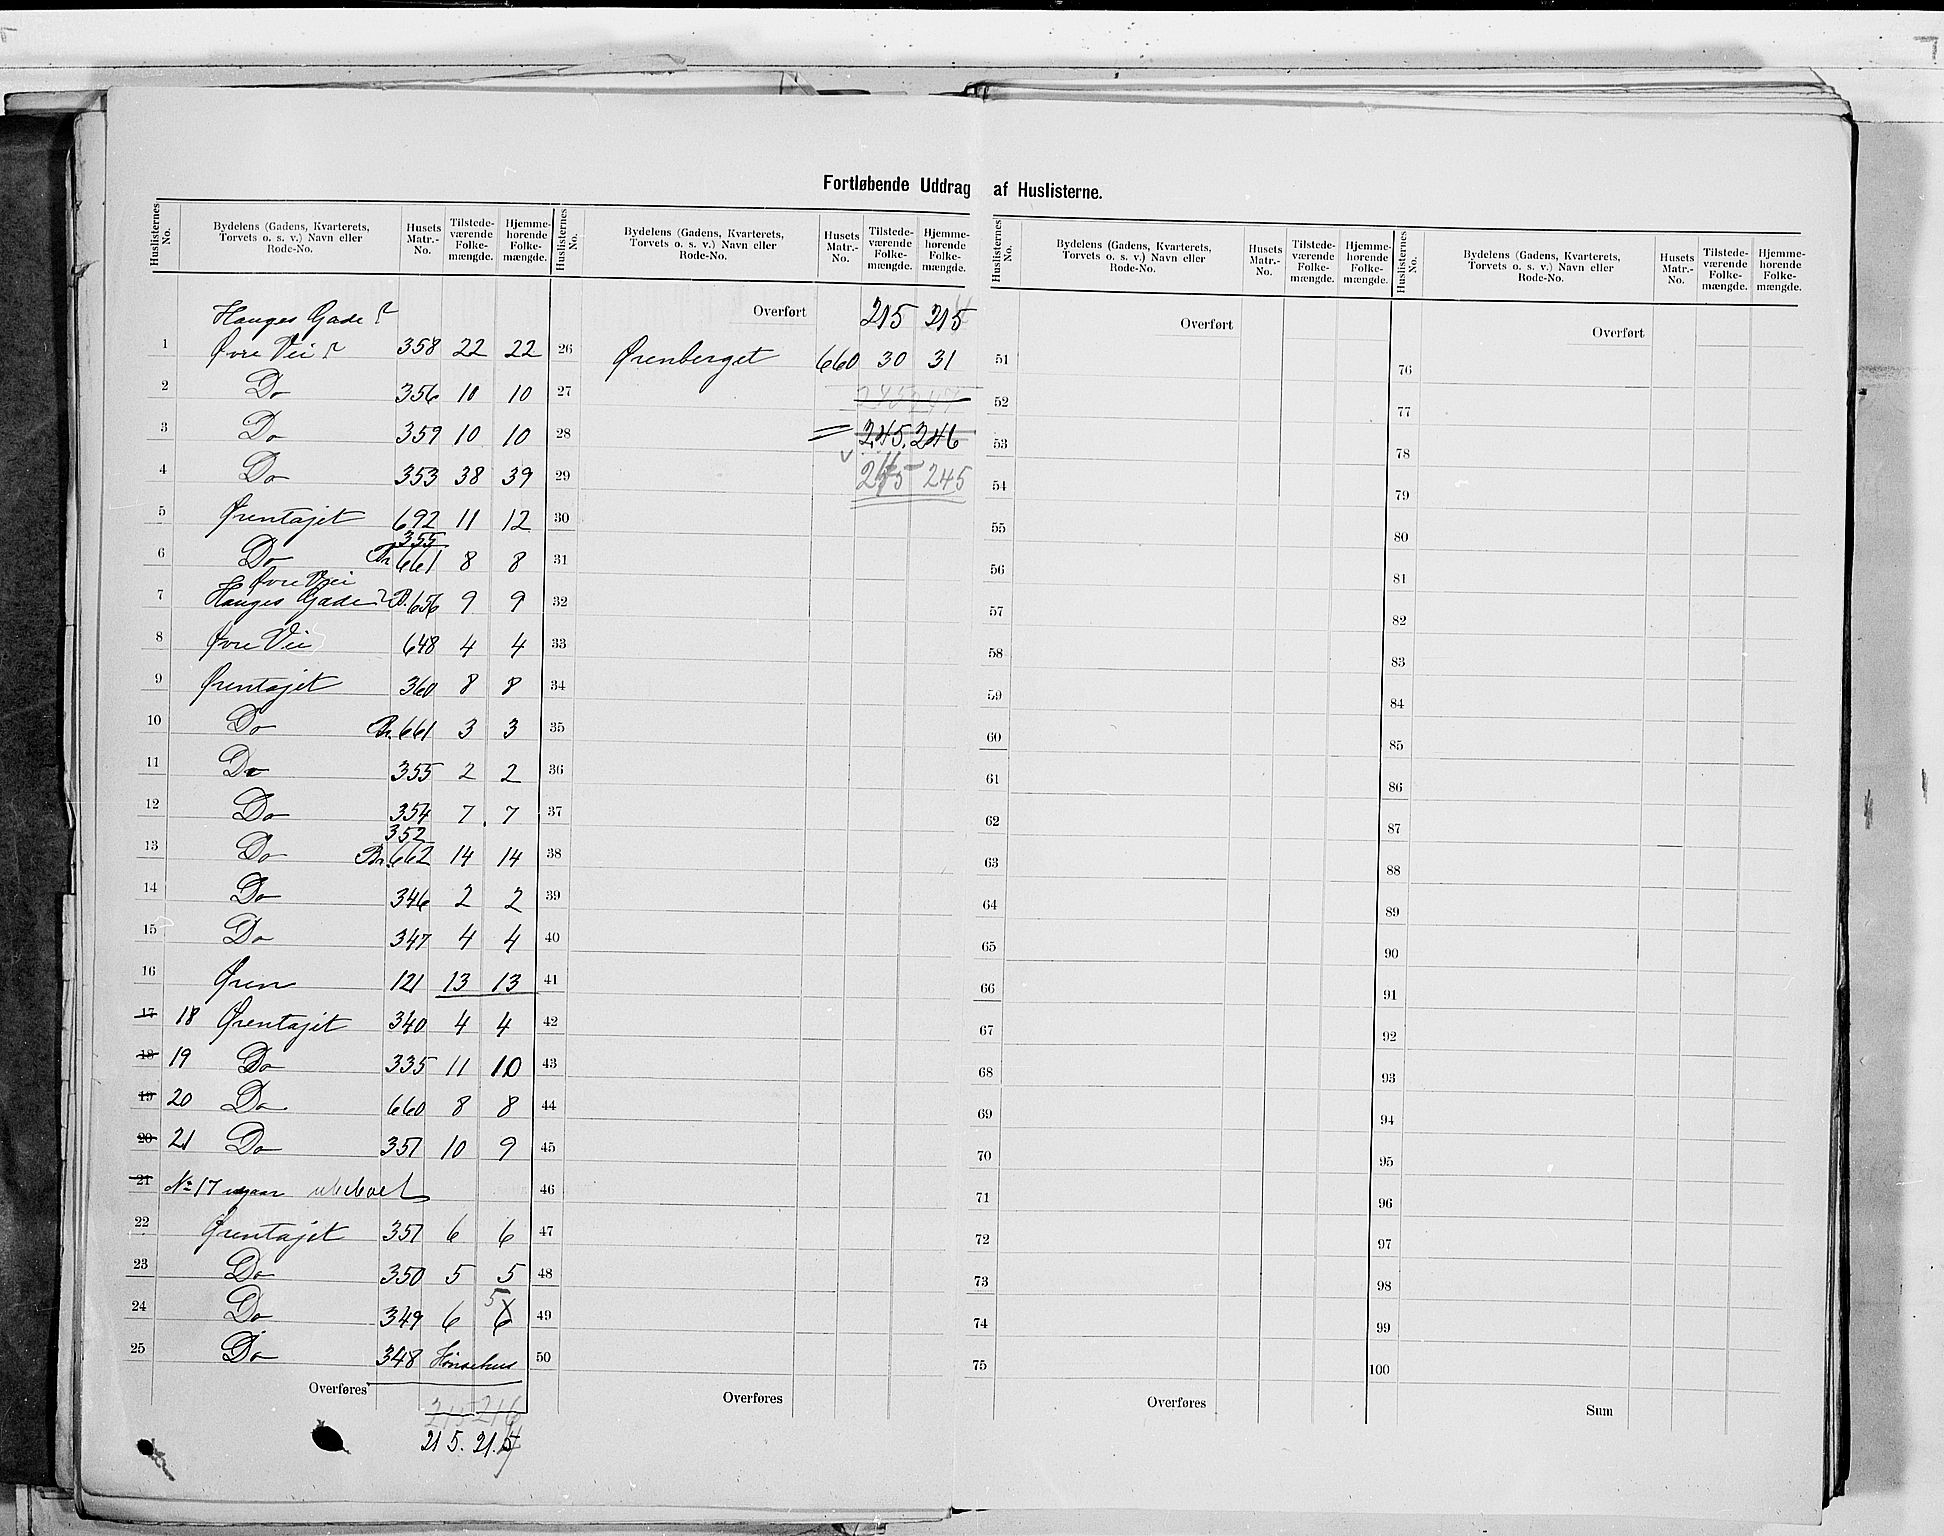 Fortløbende Uddrag af Huslisterne.
Huslisternes No. Bydelens (Gadens, Kvarterets, Torvets o. s. v.) Navn eller Rode-No. Husets Matr.-No. Tilstede-værende Folke-mængde. Hjemme-hørende Folke-mængde.
Hauges Gade ?
1 Øvre Vei ? 358 22 22
2 Do 356 10 10
3 Do 359 10 10
4 Do 353 38 39
5 Ørentajet 692 11 12
355
6 Do Br. 661 8 8
Øvre Vei
7 Hauges Gade ? B. 656 9 9
8 Øvre Vei 648 4 4
9 Ørentajet 360 8 8
10 Do Br. 661 3 3
11 Do 355 2 2
12 Do 354 7 7
352
13 Do Br. 662 14 14
14 Do 346 2 2
15 Do 347 4 4
16 Øren 121 13 13
17 18 Ørentajet 340 4 4
18 19 Do 335 11 10
19 20 Do 660 8 8
20 21 Do 351 10 9
21 No 17 ubeboet
22 Ørentajet 357 6 6
23 Do 350 5 5
24 Do 349 6 6 5
25 Do 348 Hønsehus
Overføres
215 216
215. 215
Huslisternes No. Bydelens (Gadens, Kvarterets, Torvets o. s. v.) Navn eller Rode-No. Husets Matr.-No. Tilstede-værende Folke-mængde. Hjemme-hørende Folke-mængde.
Overført 215 215
26 Ørenberget 660 30 31
27 245 247
28 245. 246
29 245 245
30
31
32
33
34
35
36
37
38
39
40
41
42
43
44
45
46
47
48
49
50
Overføres
Huslisternes No. Bydelens (Gadens, Kvarterets, Torvets o. s. v.) Navn eller Rode-No. Husets Matr.-No. Tilstede-værende Folke-mængde. Hjemme-hørende Folke-mængde.
Overført
51
52
53
54
55
56
57
58
59
60
61
62
63
64
65
66
67
68
69
70
71
72
73
74
75
Overføres
Huslisternes No. Bydelens (Gadens, Kvarterets, Torvets o. s. v.) Navn eller Rode-No. Husets Matr.-No. Tilstede-værende Folke-mængde. Hjemme-hørende Folke-mængde.
Overført
76
77
78
79
80
81
82
83
84
85
86
87
88
89
90
91
92
93
94
95
96
97
98
99
100
Sum